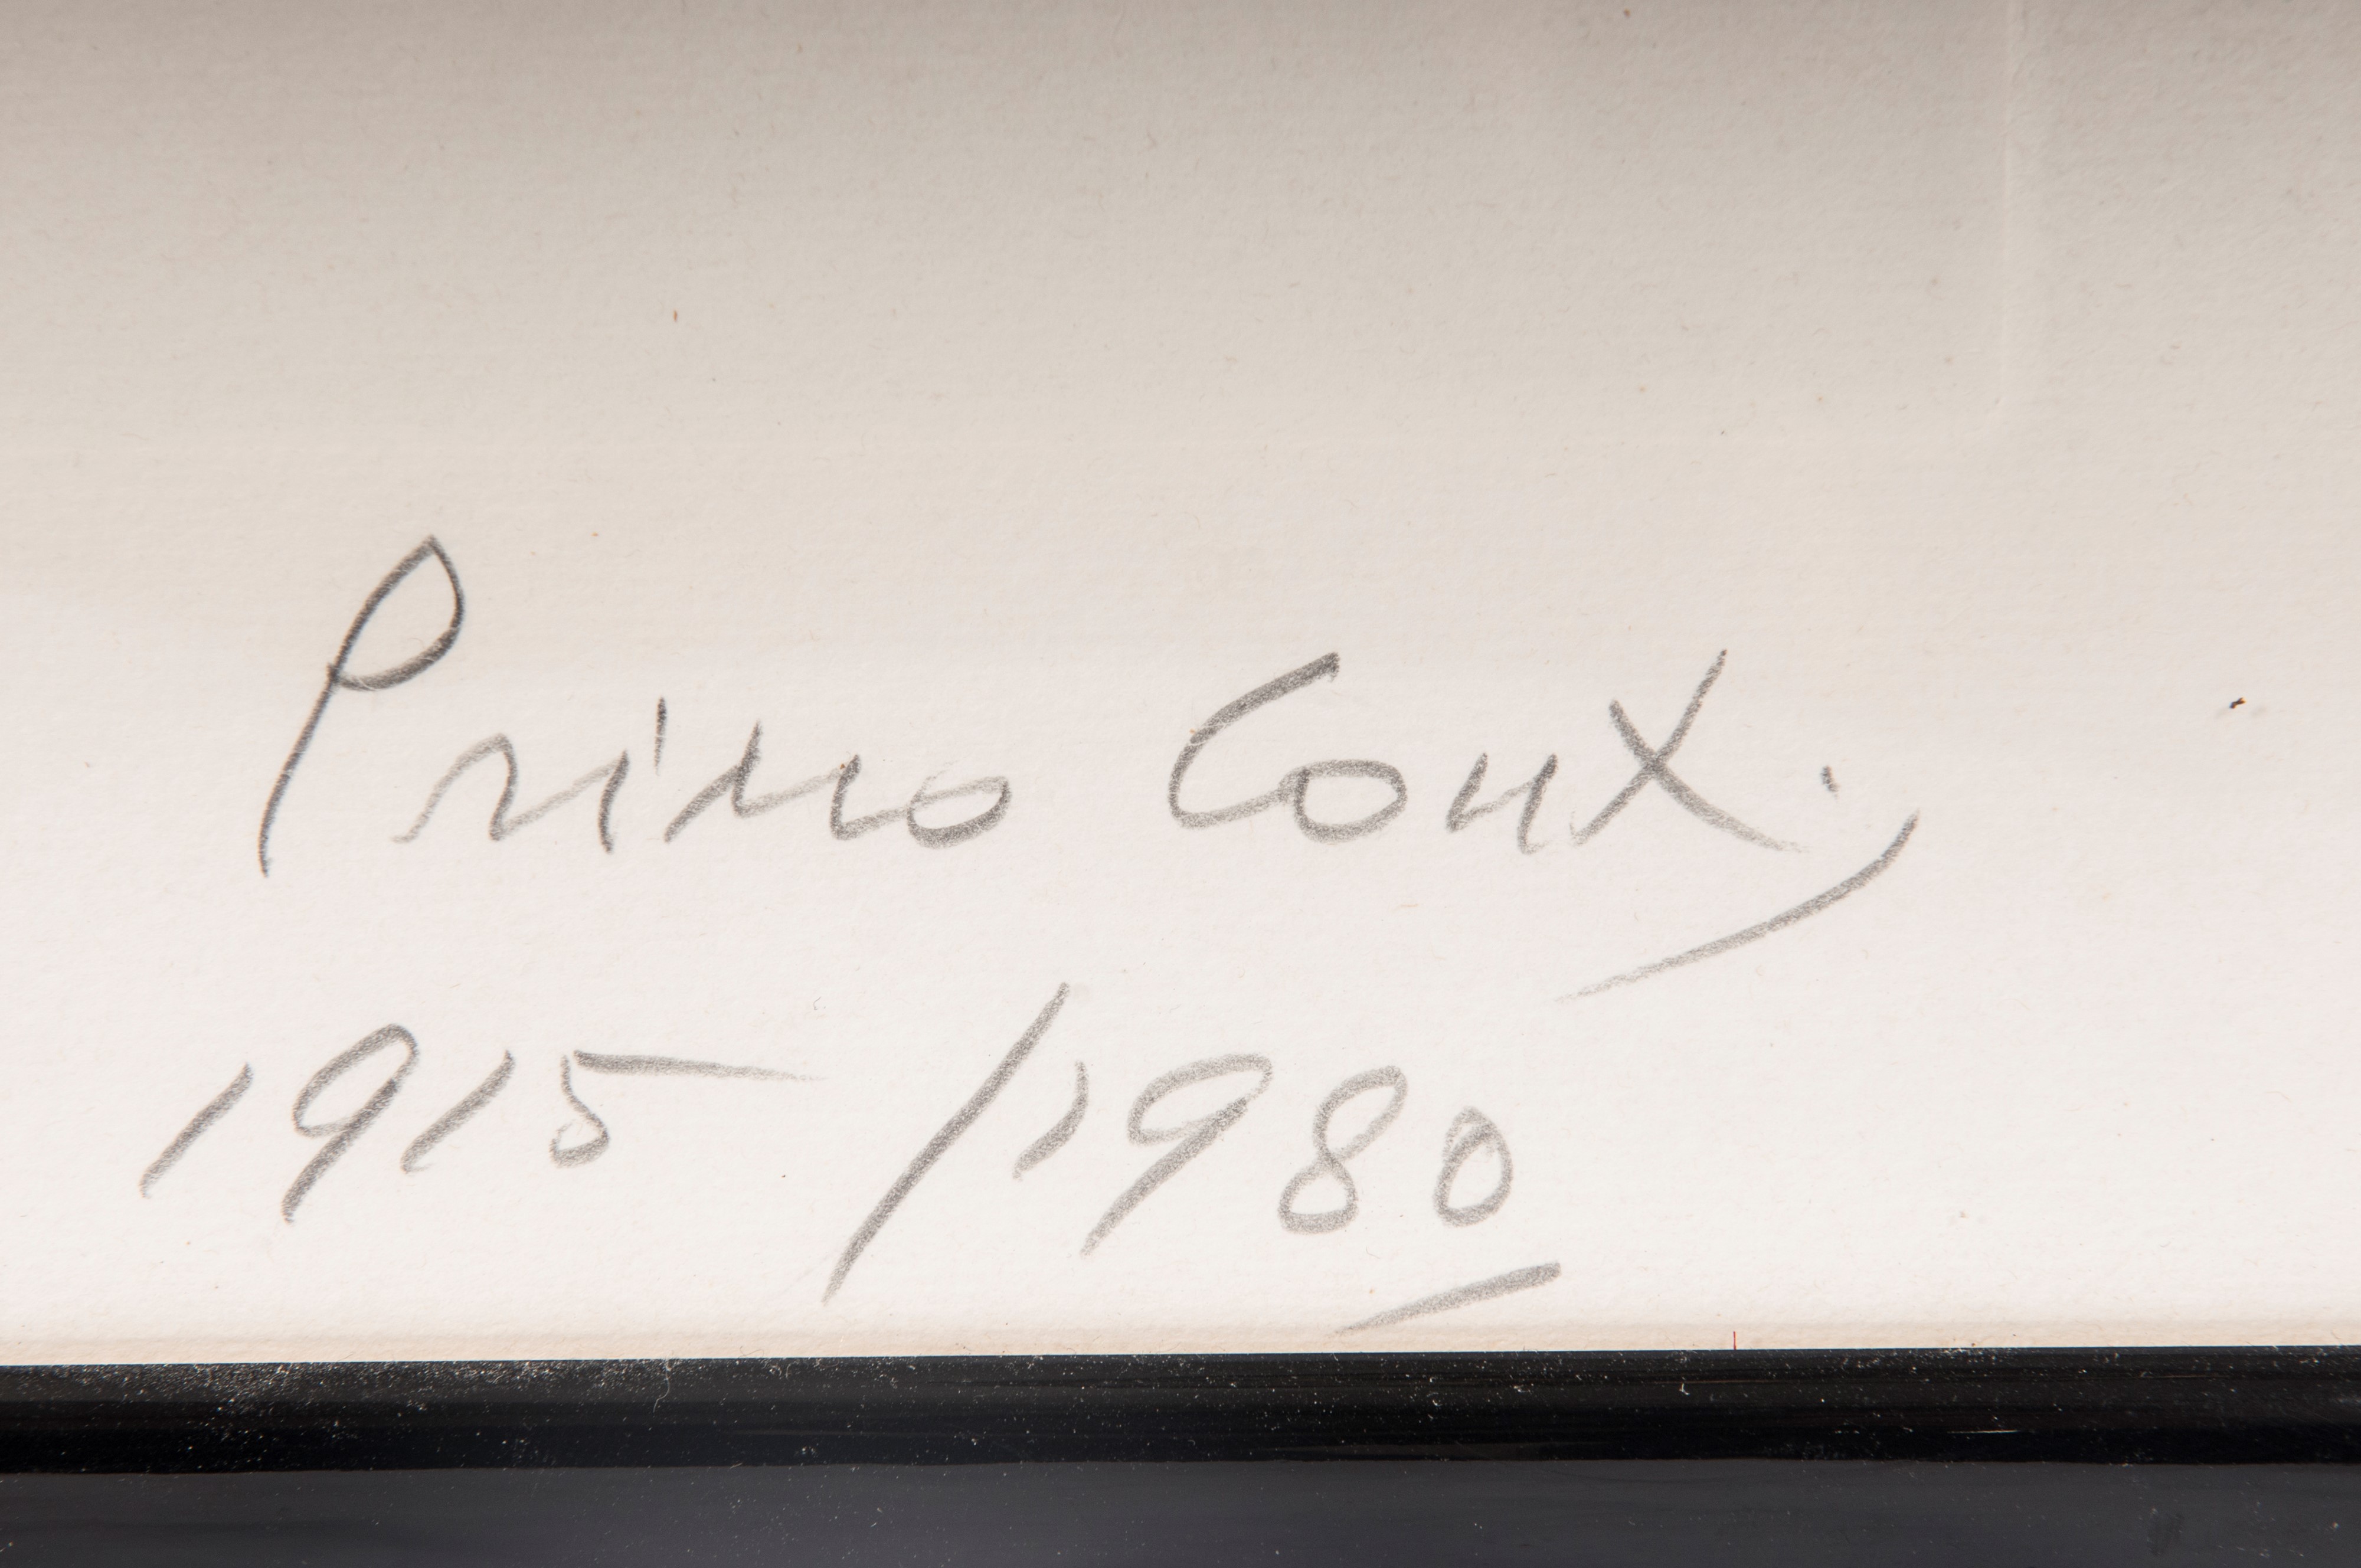 Primo Conti
1915/1980